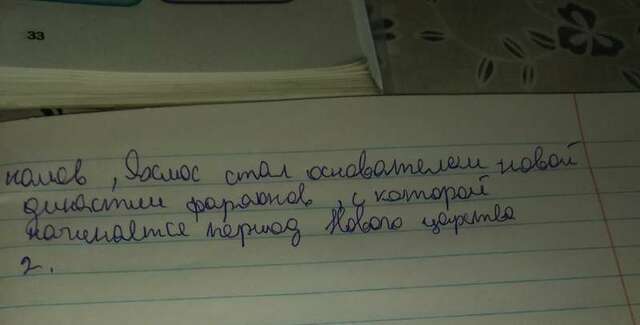 33
номов, Яхмос стал основателем новой
династии фараонов, с которой
начинается период Нового царства
2.